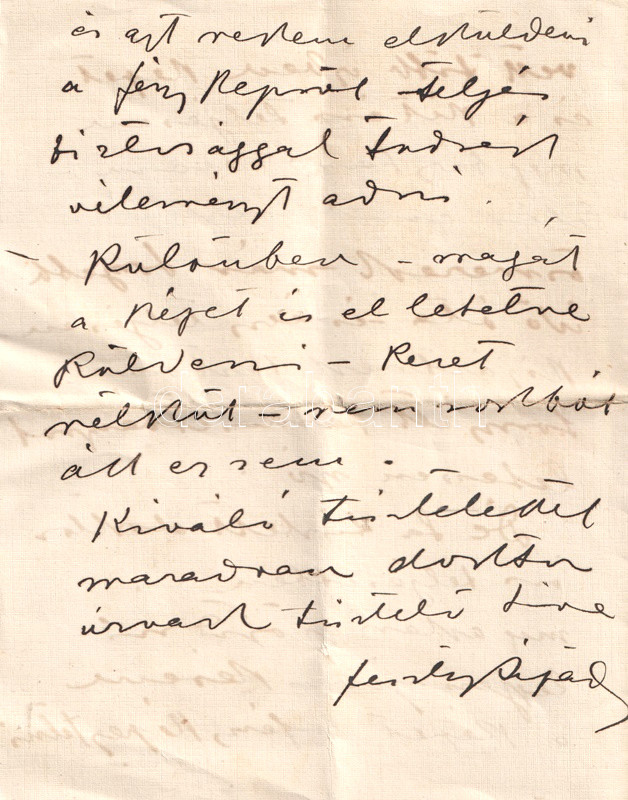 és azt nekem elküldeni
a fényképről teljes
biztossággal tudnék
véleményt adni.
Különben – magát
a képet is el lehetne
küldeni – keret
nélkül – nem
áll ez sem.
Kiváló tisztelettel
maradván doktor
úrnak tisztelő híve
Feszty Árpád
darabanth